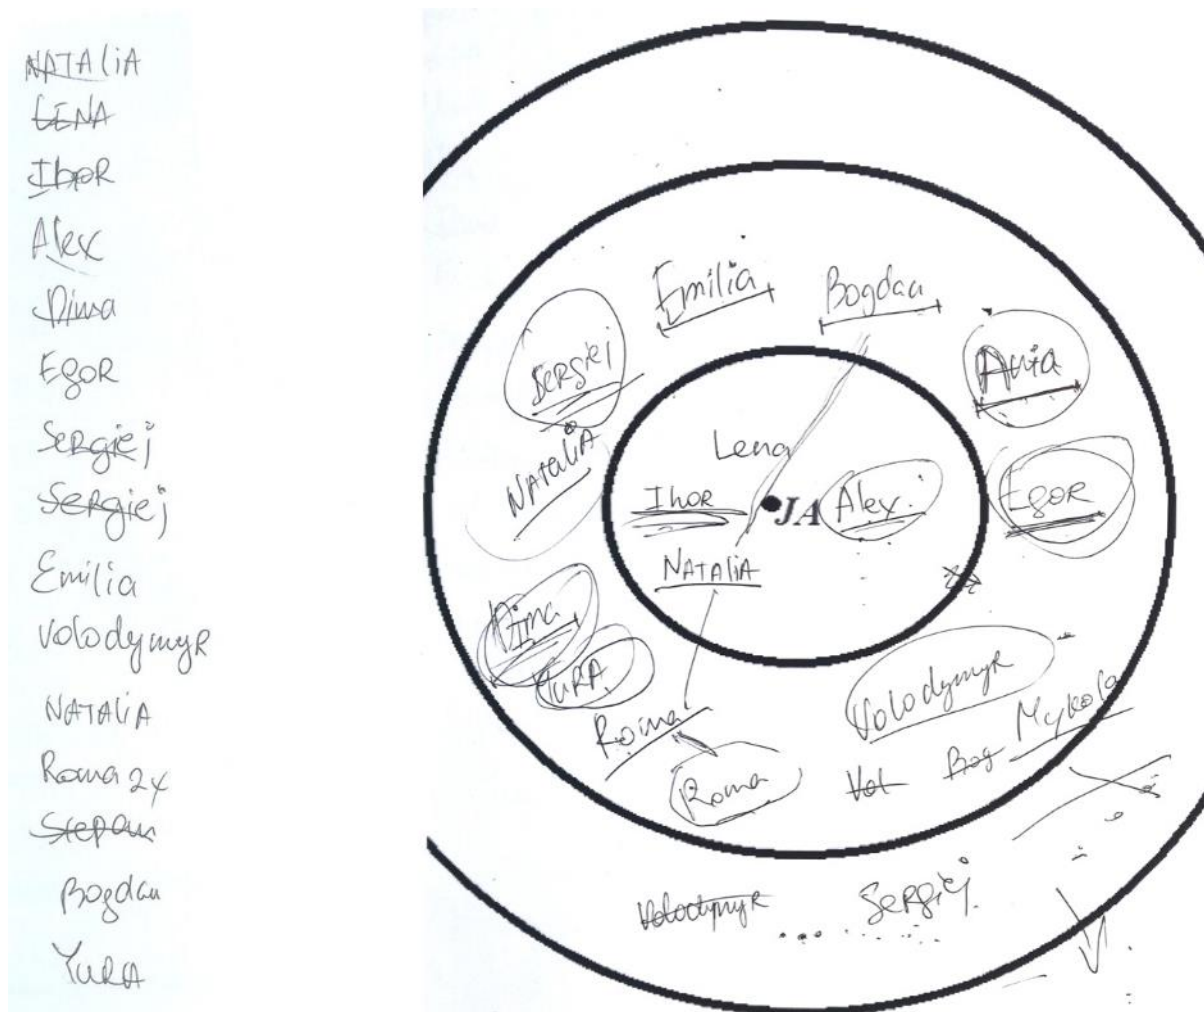 NATALIA
LENA
Ihor
Alex
Dima
EgoR
Sergiej
Sergiej
Emilia
VolodymyR
NATALIA
Roma 2x
Stepan
Bogdan
YURA
Emilia
Bogdan
Sergiej
Ania
NATALIA
Lena
IhoR
JA
Alex.
EgoR
NATALIA
Dima
YURA
VolodymyR
Roma
Mykola
Roma
Vol
Bog
VolodymyR
Sergiej.